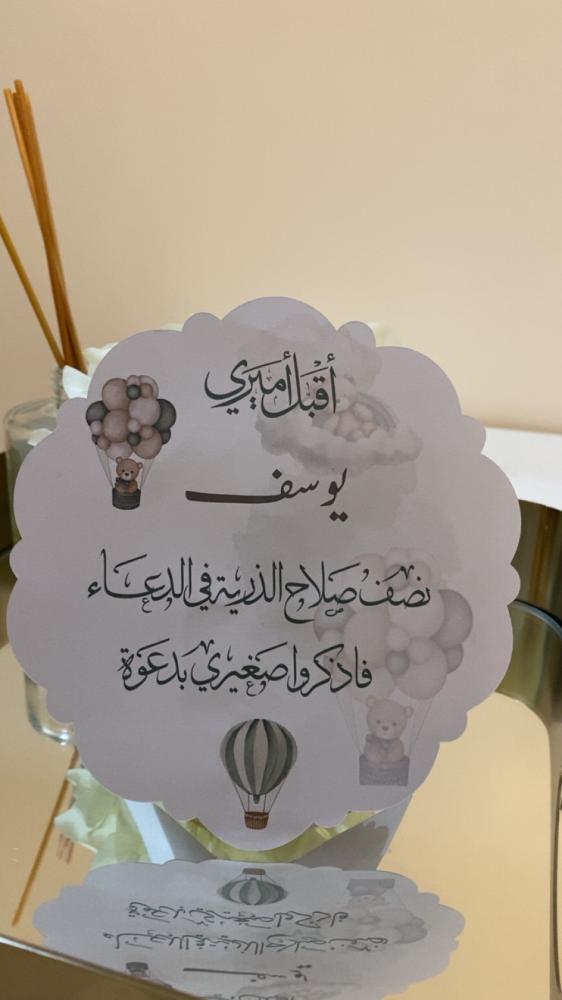 أقبل أميري
يوسف
نصف صلاح الذرية في الدعاء
فاذكروا صغيري بدعوة